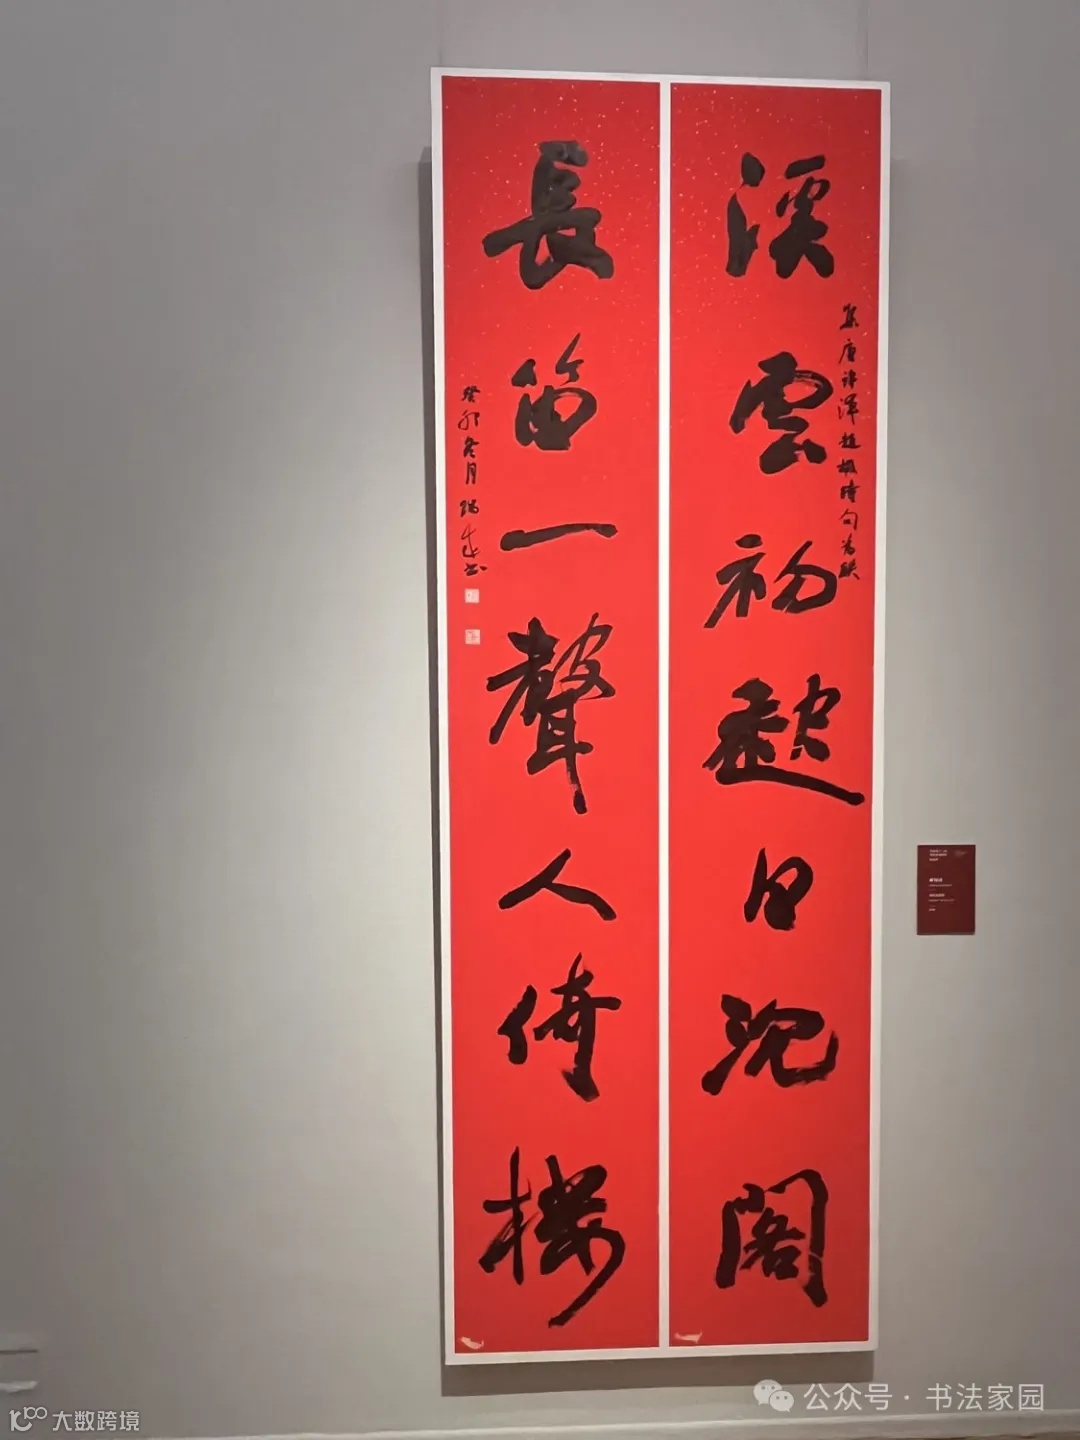 溪雲初起日沈閣
集唐許渾趙嘏詩句為联
長笛一聲人倚樓
癸卯冬月
公众号 · 书法家园
大数跨境